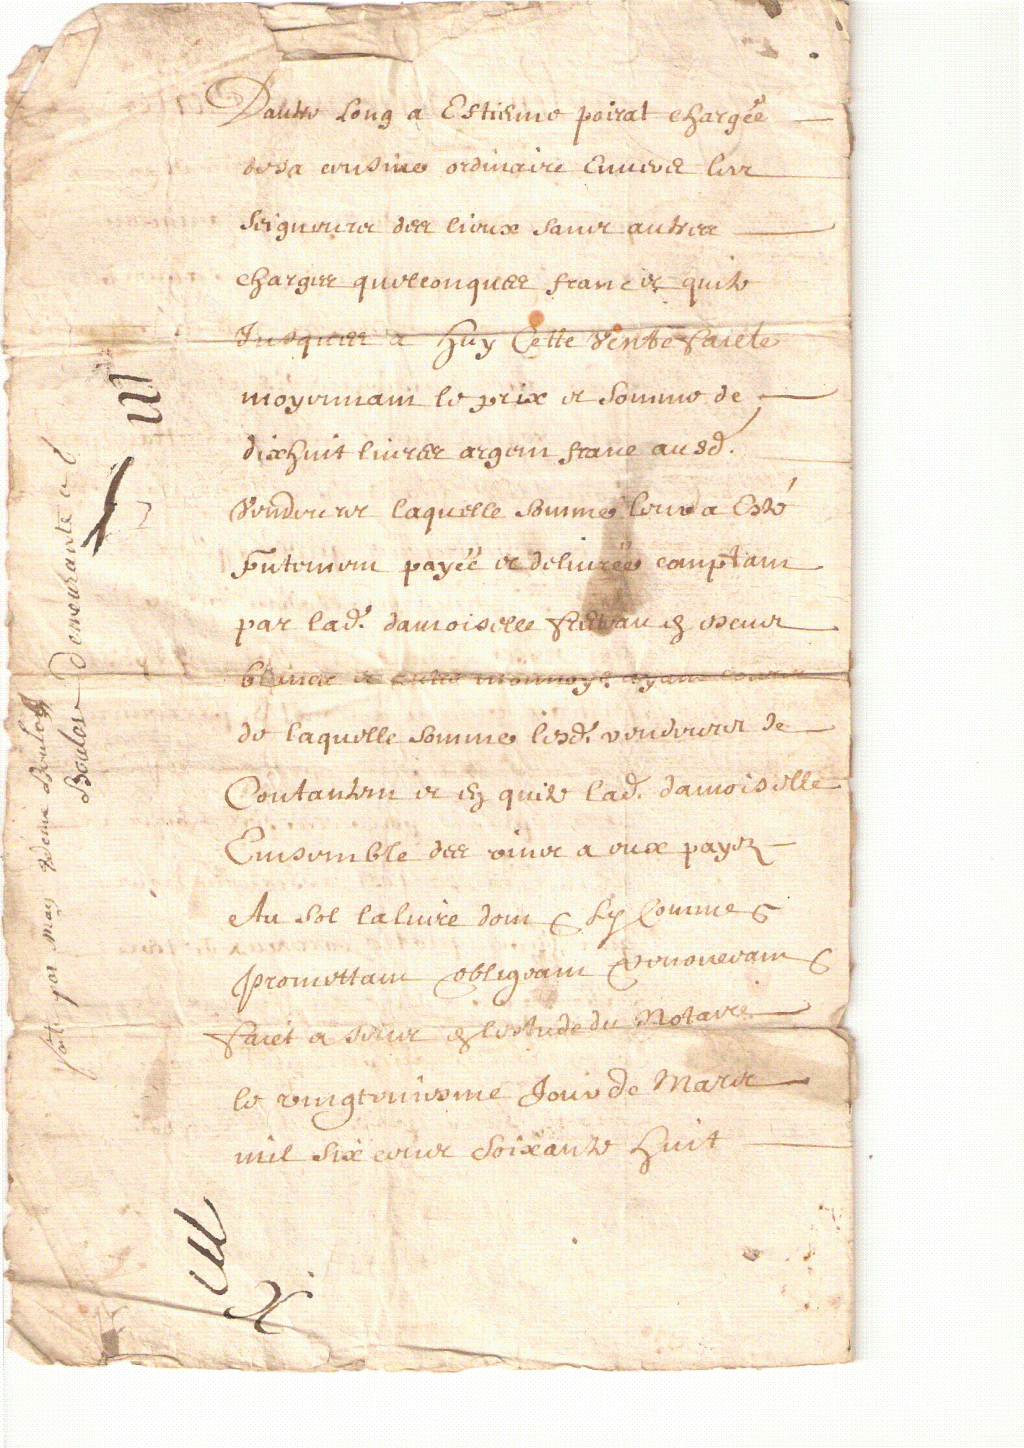 Dautre long a Estienne poirat chargée
de sa censive ordinaire Envers les
seigneurs des lieux sans autres
charges quelconques franc et quite
Jusques a huy Cette Vente faicte
moyennant le prix et somme de
dixhuit livres argent franc ausd.
Vendeurs laquelle somme leur a Esté
payéé et delivréé comptant
par lad. damoiselle
blancs et autre monnoye ayant cours
de laquelle somme lesd. vendeurs se
Contantent et en quite lad. damoiselle
Ensemble des vins a eux payez
Au sol la livre dont &c Sy Comme &c
promettant obligeant Renonceant &c
faict a en lestude du Notaire
le vingtroisme Jour de Mars
mil six cens soixante huit
faitte par
Boulet demeurante a